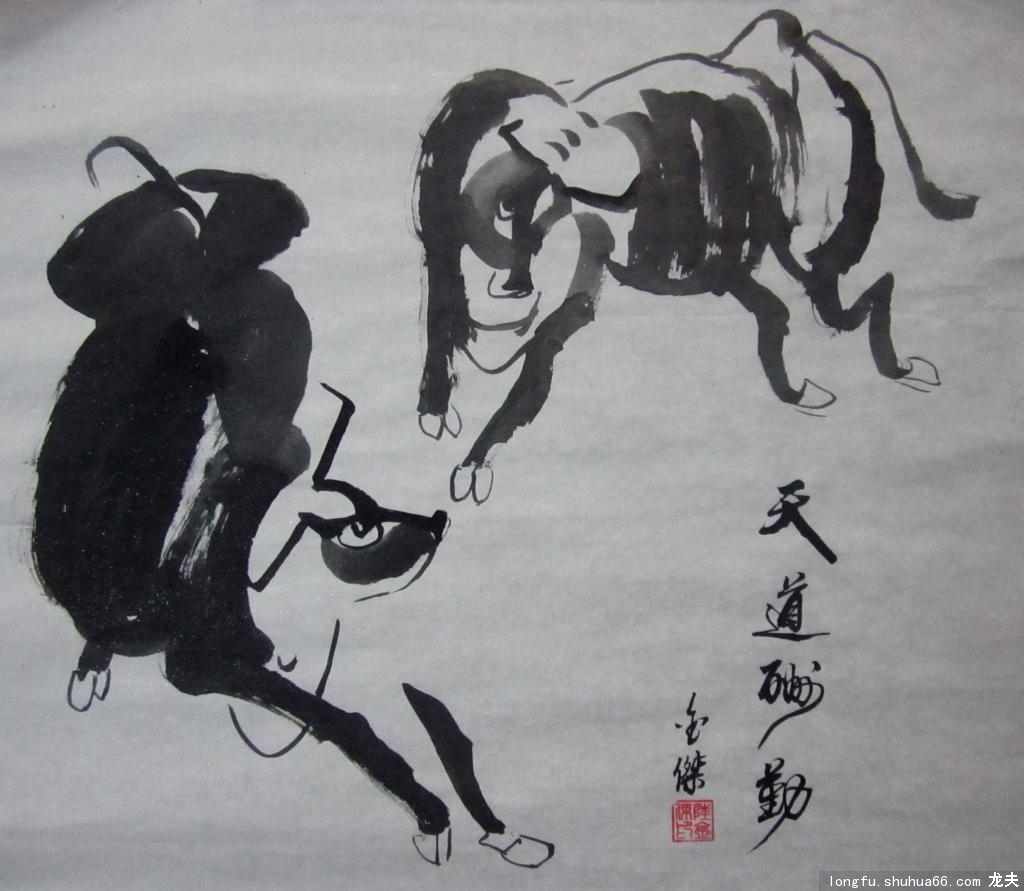 天道酬勤
金傑
longfu.shuhua66.com 龙夫